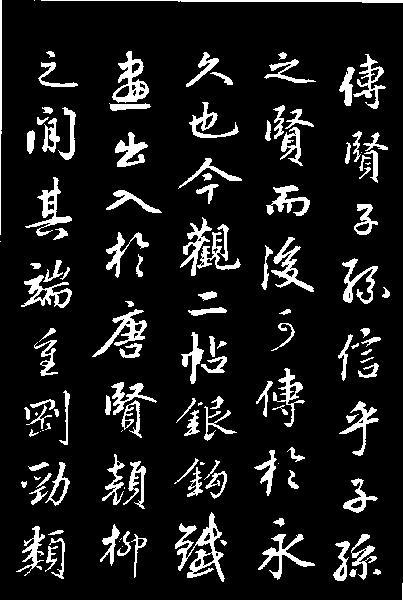 傳賢子孫信乎子孫
之賢而後可傳於永
久也今觀二帖銀鈎鐵
畫出入於唐賢顏柳
之間其端重剛勁類